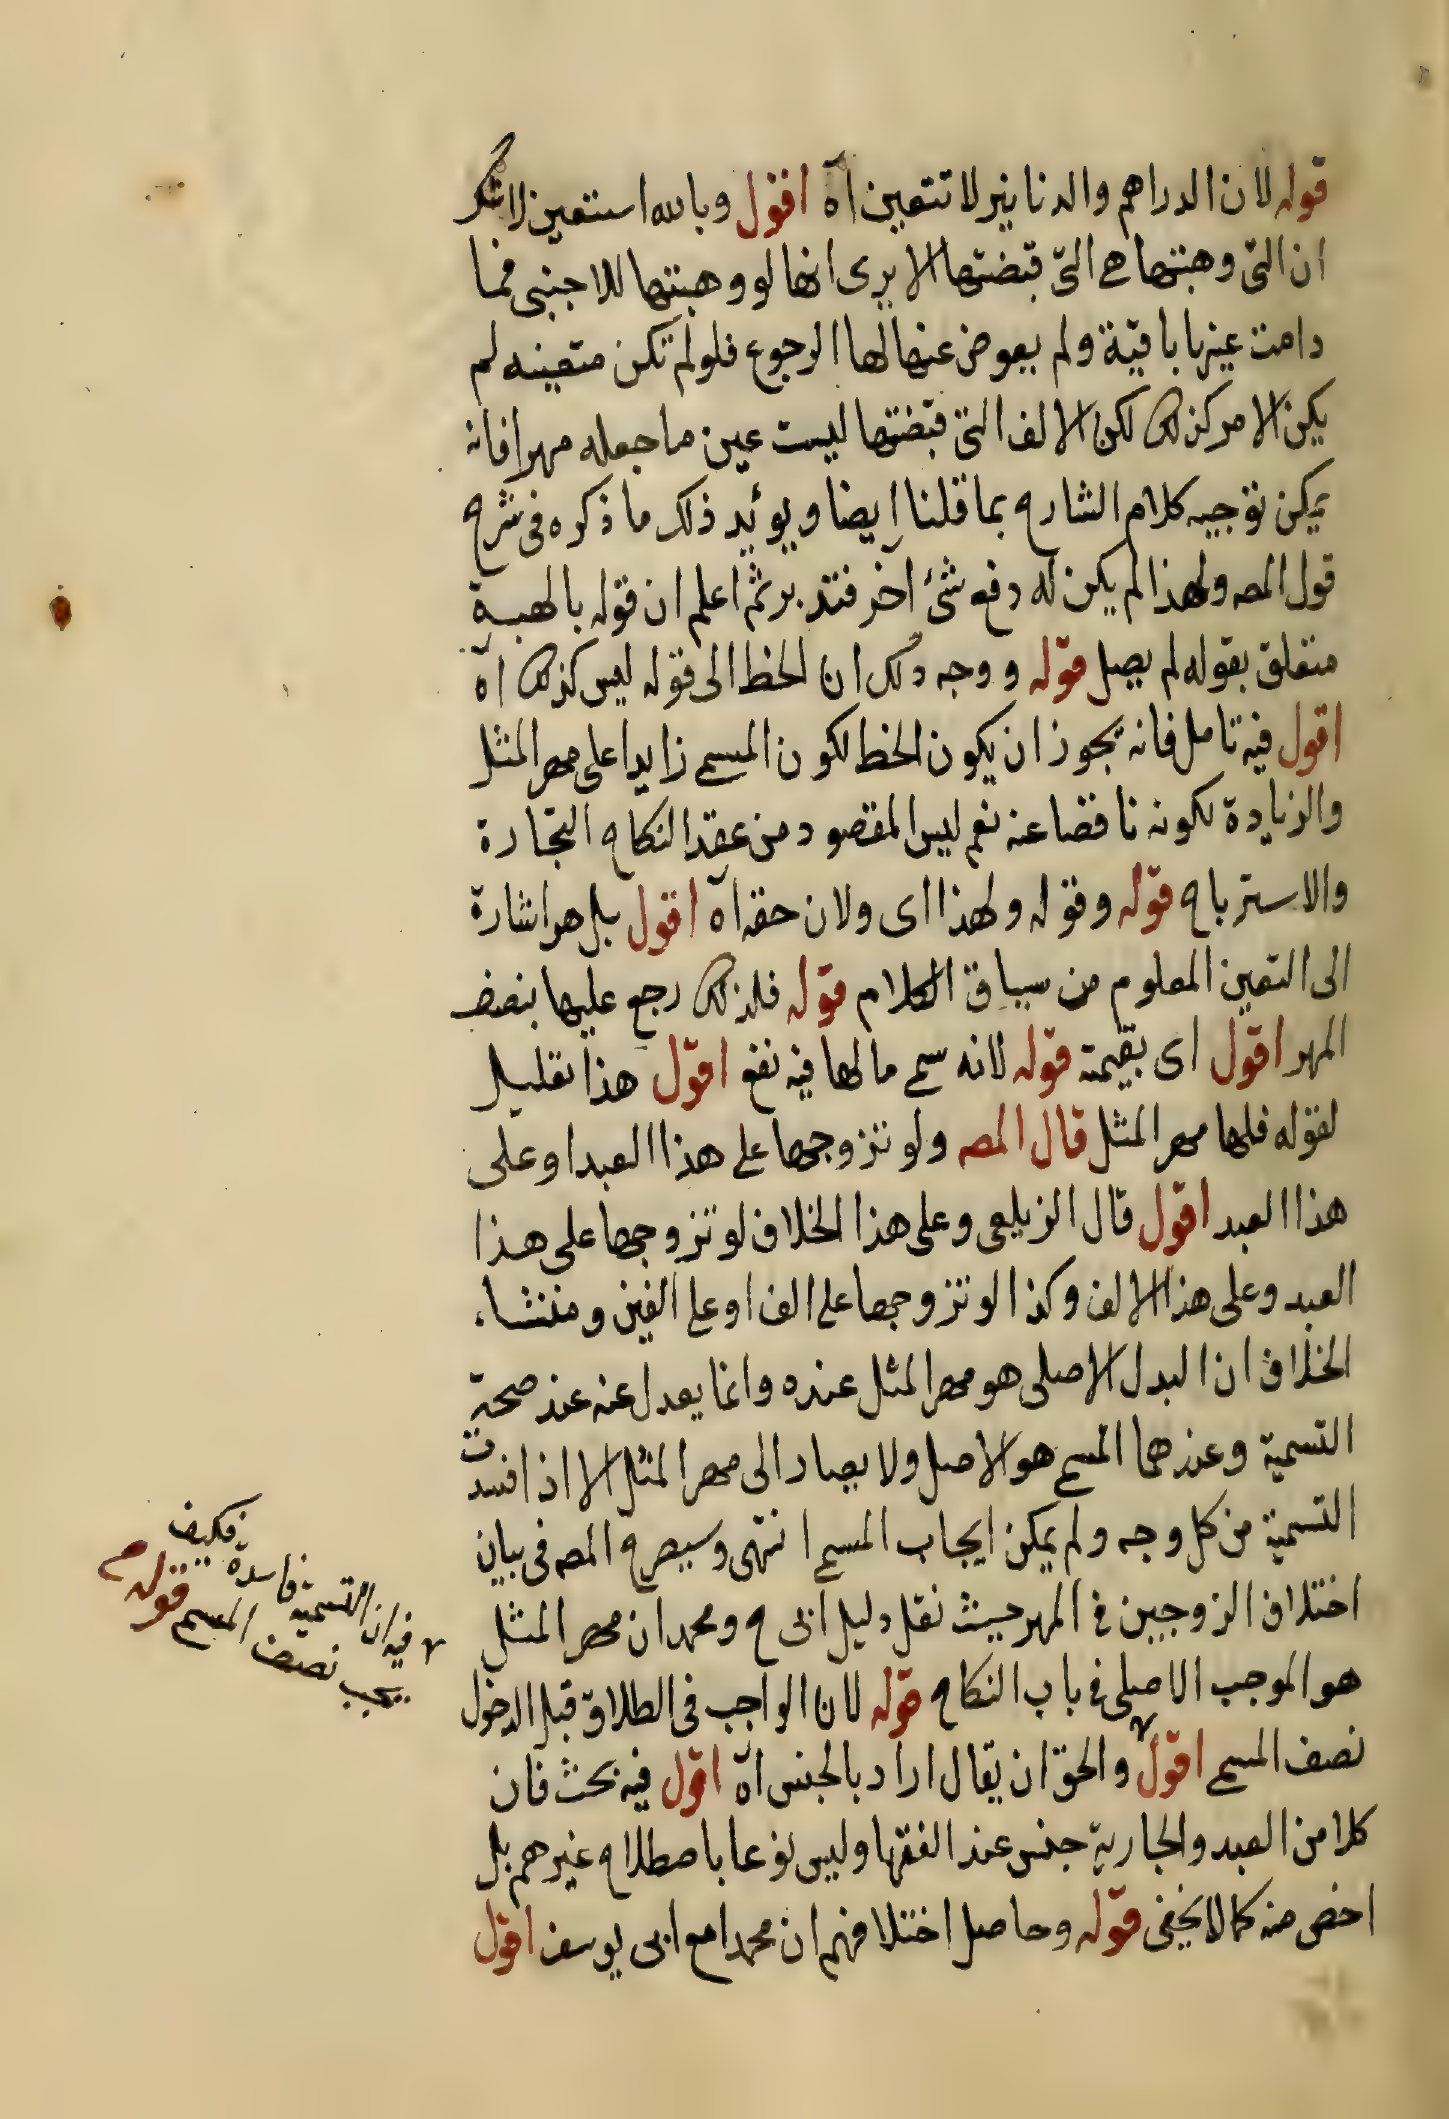 قوله لان الدراهم والدنانير لا تتعين اه اقول وبالله استعين لا شك
ان التى وهبتها هى التى قبضتها الا يرى انها لو وهبتها للاجنبى فما
دامت عينها باقية ولم يعوض عنها لها الرجوع فلو لم تكن متعينه لم
يكن الامر كذلك لكن الالف التى قبضتها ليست عين ما جعله مهرا فانه
يمكن توجيه كلام الشارح بما قلنا ايضا ويؤيد ذلك ما ذكره فى شرح
قول المص ولهذا لم يكن له دفع شئ آخر فتدبر ثم اعلم ان قوله بالهبة
متعلق بقوله لم يصل قوله ووجه ذلك ان الحط الى قوله ليس كذلك اه
اقول فيه تامل فانه يجوز ان يكون الحط لكون المسمى زايدا على مهر المثل
والزيادة لكونه ناقصا عنه نعم ليس المقصود من عقد النكاح التجارة
والاسترباح قوله وقوله ولهذا اى ولان حقه اه اقول بل هو اشارة
الى التعين المعلوم من سياق الكلام قوله فلذلك رجع عليها بنصف
المهر اقول اى بقيمة قوله لانه سمى ما لها فيه نفع اقول هذا تعليل
لقوله فلها مهر المثل قال المص ولو تزوجها على هذا العبد او على
هذا العبد اقول قال الزيلعى وعلى هذا الخلاف لو تزوجها على هذا
العبد وعلى هذا الالف وكذا لو تزوجها على الف او على الفين ومنشاء
الخلاف ان البدل الاصلى هو مهر المثل عنده وانما يعدل عنه عند صحة
التسمية وعندهما المسمى هو الاصل ولا يصار الى مهر المثل الا اذا فسدت
التسمية من كل وجه ولم يمكن ايجاب المسمى انتهى وسيصرح المص فى بيان
اختلاف الزوجين فى المهر حيث نقل دليل ابى ح ومحمد ان مهر المثل
هو الموجب الاصلى فى باب النكاح قوله لان الواجب فى الطلاق قبل الدخول
نصف المسمى اقول والحق ان يقال اراد بالجنس اه اقول فيه بحث فان
كلا من العبد والجارية جنس عند الفقها وليس نوعا باصطلاح غيرهم بل
اخص منه كما لا يخفى قوله وحاصل اختلافهم ان محمدا مع ابى يوسف اقول
فيه ان التسمية فاسدة فكيف
يجب نصف المسمى قوله م